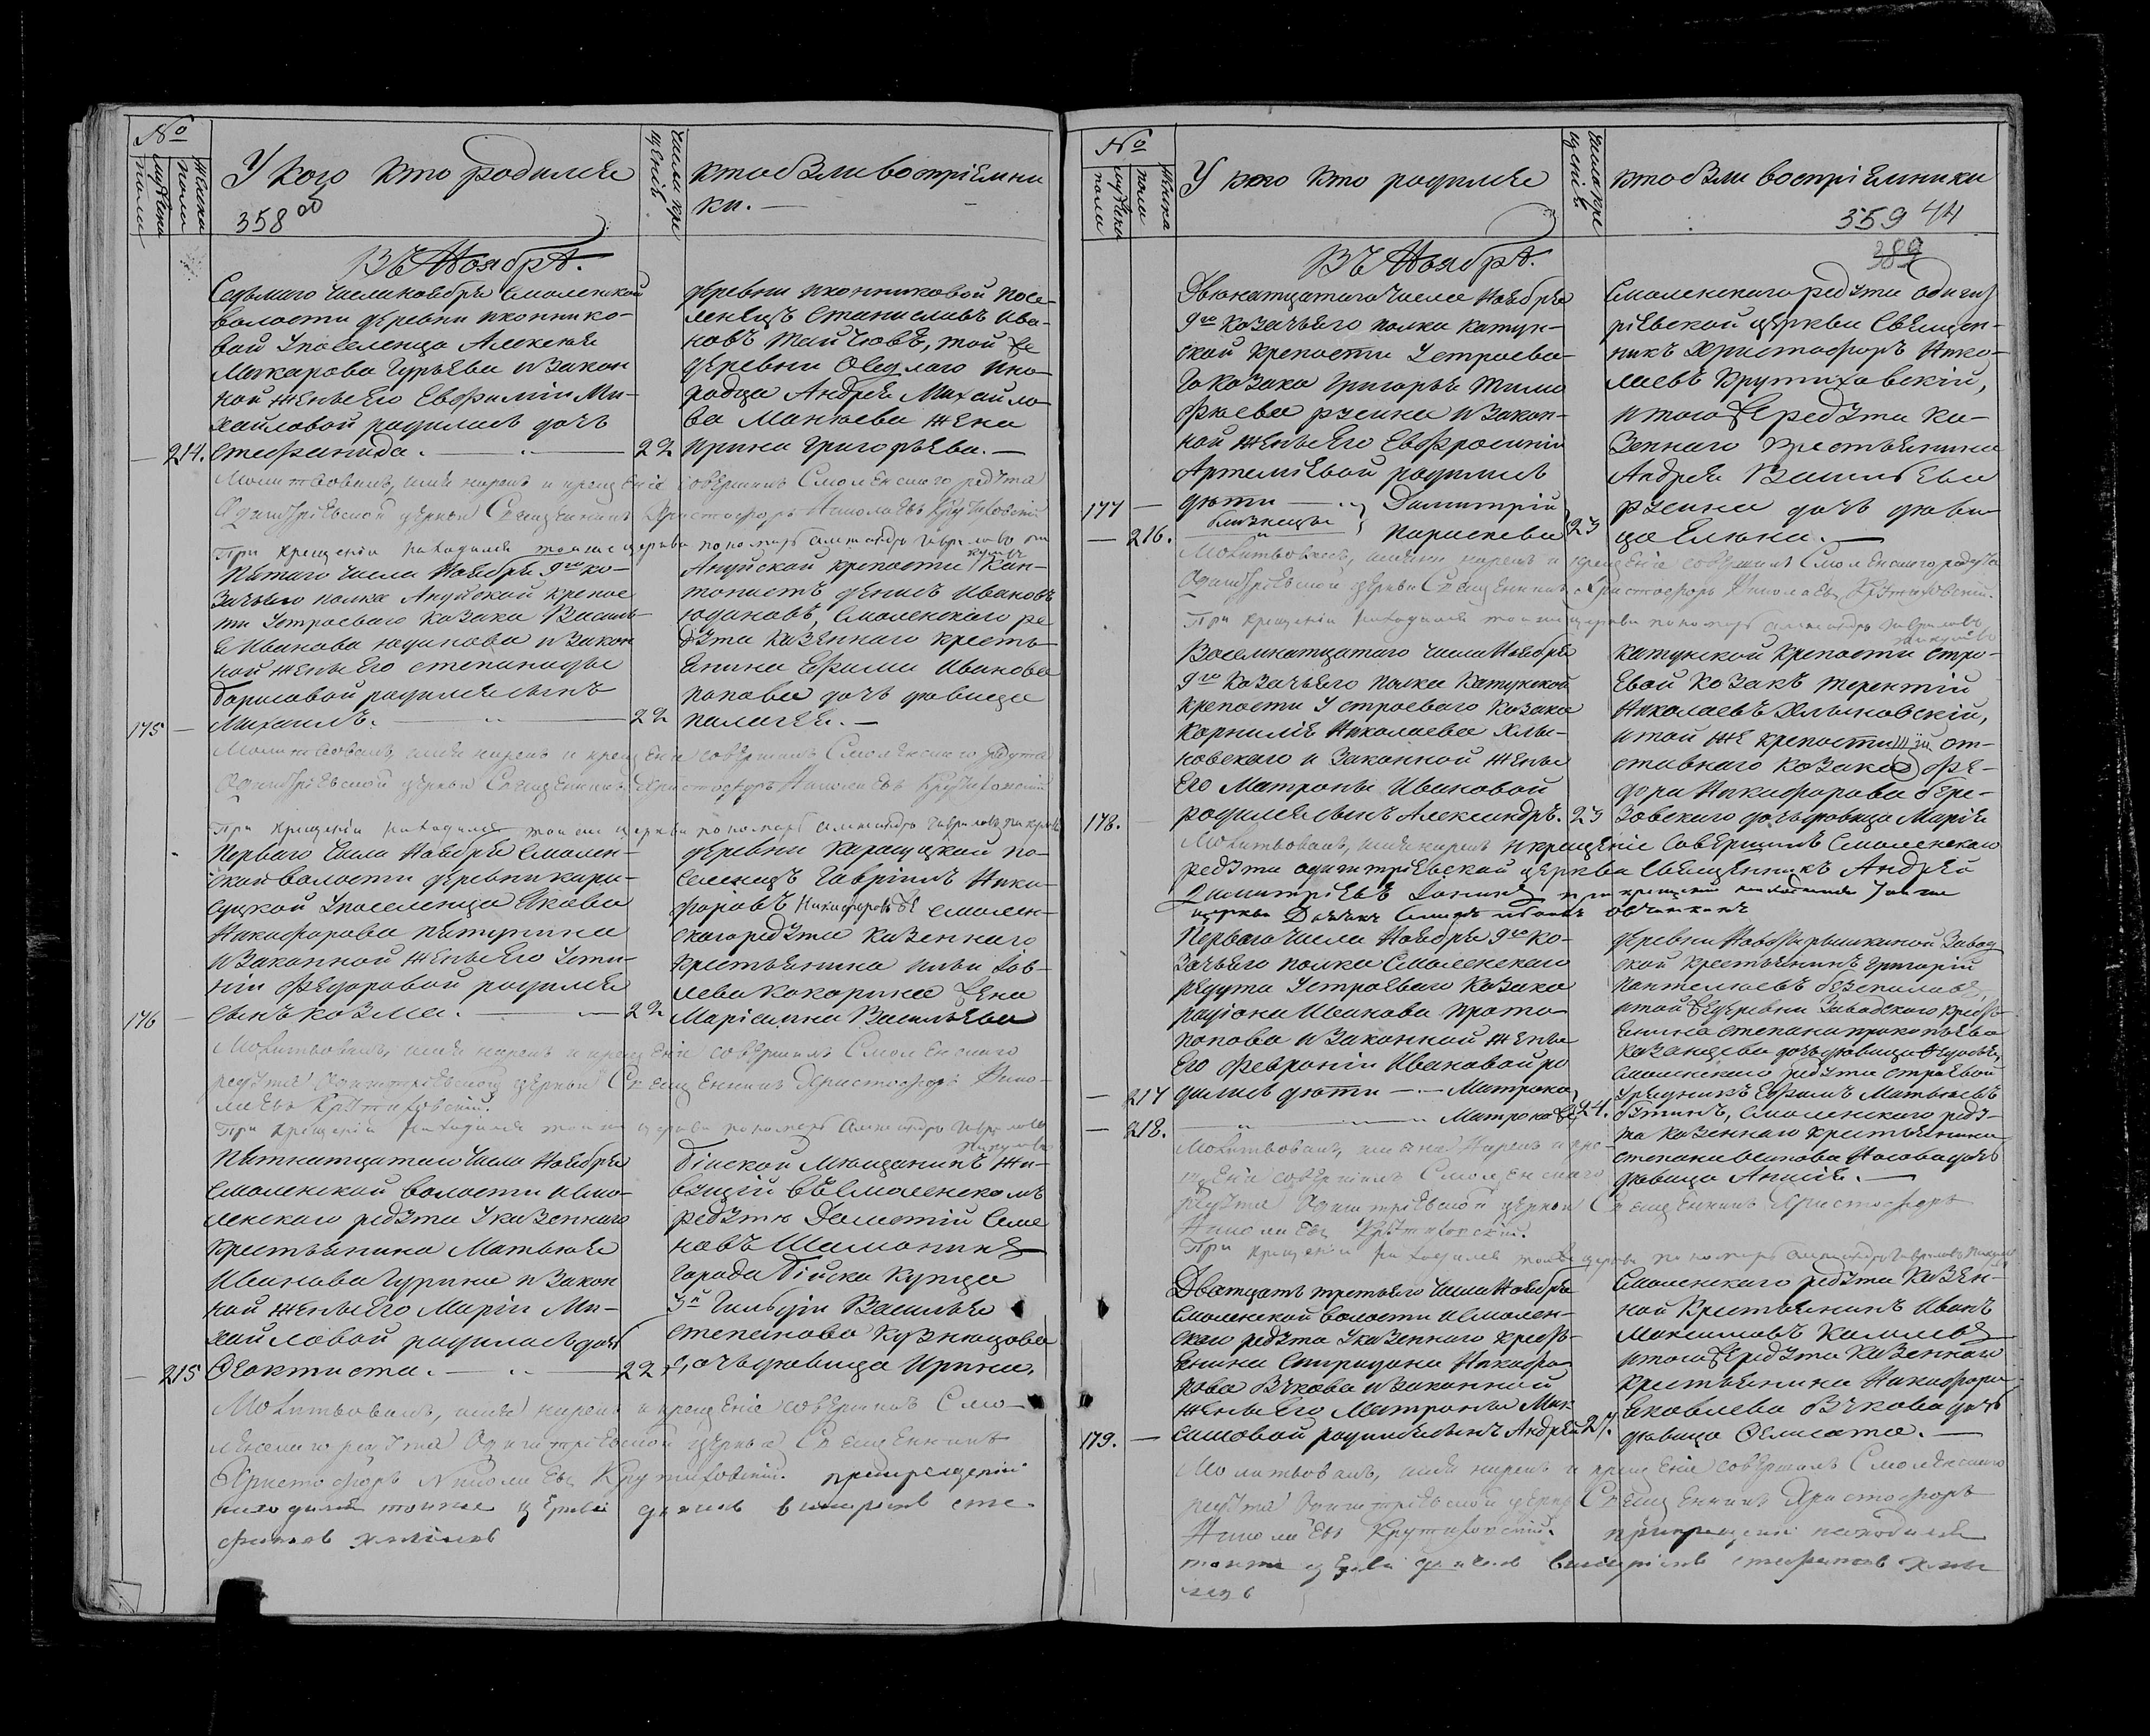 №
мужеска пола
женска пола
У кого кто родился
число крещенія
кто были воспріемни
ки. —
358 об
Въ Ноябрѣ.
Седьмаго числа ноября Смоленской
волости деревни иконнико-
вой у поселенца Алексѣя
Макарова Гурьева и закон
ной жены его Евфиміи Ми-
хайловой родилась дочь
— 214. Стефанида. — 22
деревни иконниковой посе-
ленецъ Станиславъ Ива-
новъ той же
деревни Оседлаго ино-
родца Андрея Михайло-
ва Манжева жена
Ирина Григорьева. —
Молитвовалъ, имя нарекъ и крещеніе совершилъ Смоленскаго редута
Одигитріевской церкви Священникъ Христофоръ Николаевъ Крутиховскій
При крещеніи находился тойже церкви пономарь Александръ Гавриловъ
Пятаго числа Ноября 9го ко-
зачьяго полка Ануйской крепос
ти у строеваго казака Василь
я Иванова Юдинова и закон
ной жены его Степаниды
Борисовой родился сынъ
175 — Михаилъ. — 22
Ануйской крепости Кан-
тонистъ Денисъ Ивановъ
Юдиновъ, Смоленскаго ре
дута казеннаго кресть
янина Ефима Иванова
попова дочь девица
Палагея. —
Молитвовалъ, имя нарекъ и крещеніе совершилъ Смоленскаго редута
Одигитріевской церкви Священникъ Христофоръ Николаевъ Крутиховскій
При крещеніи находился тойже церкви пономарь Александръ Гавриловъ
Перваго числа Ноября Смолен-
ской волости деревни кара-
суцкой у поселенца Якова
Никифорова Пятунина
и законной жены его Усти-
ніи Федоровой родился
176 — сынъ Козма. — 22
деревни карацуцкой по-
селенецъ Гавріилъ Ники-
форовъ Смолен-
скаго редута казеннаго
крестьянина Ильи Іов-
лева кокорина жена
Маріамна Васильева
Молитвовалъ, имя нарекъ и крещеніе совершилъ Смоленскаго
редута Одигитріевской церкви Священникъ Христофоръ Нико-
лаевъ Крутиховскій.
При крещеніи находился тойже церкви пономарь Александръ Гавриловъ
Пятнатцатаго числа Ноября
Смоленской волости и Смо-
ленскаго редута у казеннаго
крестьянина Матвѣя
Иванова Гурина и закон
ной жены его Маріи Ми-
хайловой родилась дочь
— 215 Феоктиста. — 22
Бійской мещанинъ жи-
вущій въ Смоленскомъ
редутѣ Дометій Семе
новъ Шамонинъ
города Бійска купца
3й Гильдіи Василья
Степанова Кузнецова
дочь девица Ирина.
Молитвовалъ, имя нарекъ и крещеніе совершилъ Смо-
ленскаго редута Одигитріевской церкви Священникъ
Христофоръ Николаевъ Крутиховскій. При крещеніи
находился тойже церкви дьячокъ
№
мужеска пола
женска пола
У кого кто родился
число крещенія
кто были воспріемники
359 44
389
Въ Ноябрѣ.
Двенатцатаго числа Ноября
9го козачьяго полка катун-
ской крепости у строева-
го козака Григорья Тимо
феева и закон-
ной жены его Евфросиніи
Артеміевой родились
177 — дѣти — Димитрій
— 216. близнецы Параскева 23
Смоленскаго редута Одигит
ріевской церкви Священ-
никъ Христофоръ Нико-
лаевъ Крутиховскій,
и того же редута ка-
зеннаго крестьянина
Андрея Васильева
дочь деви
ца Елена. —
Молитвовалъ, имена нарекъ и крещеніе совершилъ Смоленскаго редута
Одигитріевской церкви Священникъ Христофоръ Николаевъ Крутиховскій.
При крещеніи находился тойже церкви пономарь Александръ Гавриловъ
Восемнатцатаго числа Ноября
9го Козачьяго полка Катунской
крепости у строеваго козака
Корнилія Николаева Хлы-
новскаго и законной жены
его Матроны Ивановой
178. родился сынъ Александръ. 23
катунской крепости стро-
евой козакъ Терентій
Николаевъ Хлыновскій,
и той же крепости от-
ставнаго козака Фе-
дора Никифорова бере-
зовскаго дочь девица Марія
Молитвовалъ, имя нарекъ и крещеніе совершилъ Смоленскаго
редута одигитріевской церкви Священникъ Андрей
Димитріевъ при крещеніи находился тойже
церкви
Перваго числа Ноября 9го ко-
зачьяго полка Смоленскаго
редута у строеваго козака
Родіона Иванова Прото
попова и законной жены
его Февроніи Ивановой ро
— 217 дились дѣти — Матрона
— 218. — Матрона же 24.
деревни Новотырышкиной Завод
ской крестьянинъ Григорій
Пантелеевъ
и той же деревни Заводскаго кресть
янина Степана Прокопьева
Казанцева дочь девица
Смоленскаго редута строевой
урядникъ Ефимъ Матвеевъ
Смоленскаго реду-
та казеннаго крестьянина
Степана Носова дочь
девица Анисія. —
Молитвовалъ, имена нарекъ и кре-
щеніе совершилъ Смоленскаго
редута Одигитріевской церкви Священникъ Христофоръ
Николаевъ Крутиховскій.
При крещеніи находился тойже церкви пономарь Александръ Гавриловъ
Дватцать третьяго числа Ноября
Смоленской волости и Смолен-
скаго редута у казеннаго кресть-
янина Спиридона Никифо
рова Бчкова и законной
жены его Матроны Мак
179. — симовой родился сынъ Андрей 27.
Смоленскаго редута казен-
ной крестьянинъ Иванъ
Максимовъ
и того же редута казеннаго
крестьянина Никифора
Яковлева Бчкова дочь
девица Фелисата. —
Молитвовалъ, имя нарекъ и крещеніе совершилъ Смоленскаго
редута Одигитріевской церкви Священникъ Христофоръ
Николаевъ Крутиховскій. При крещеніи находился
тойже церкви дьячокъ